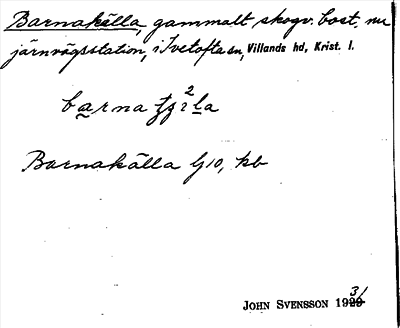 Barnakälla, gammalt skogv. bost. nu
järnvägsstation, i Ivetofta sn, Villands hd, Krist. l.
barna
Barnakälla G10, kb
JOHN SVENSSON 1931